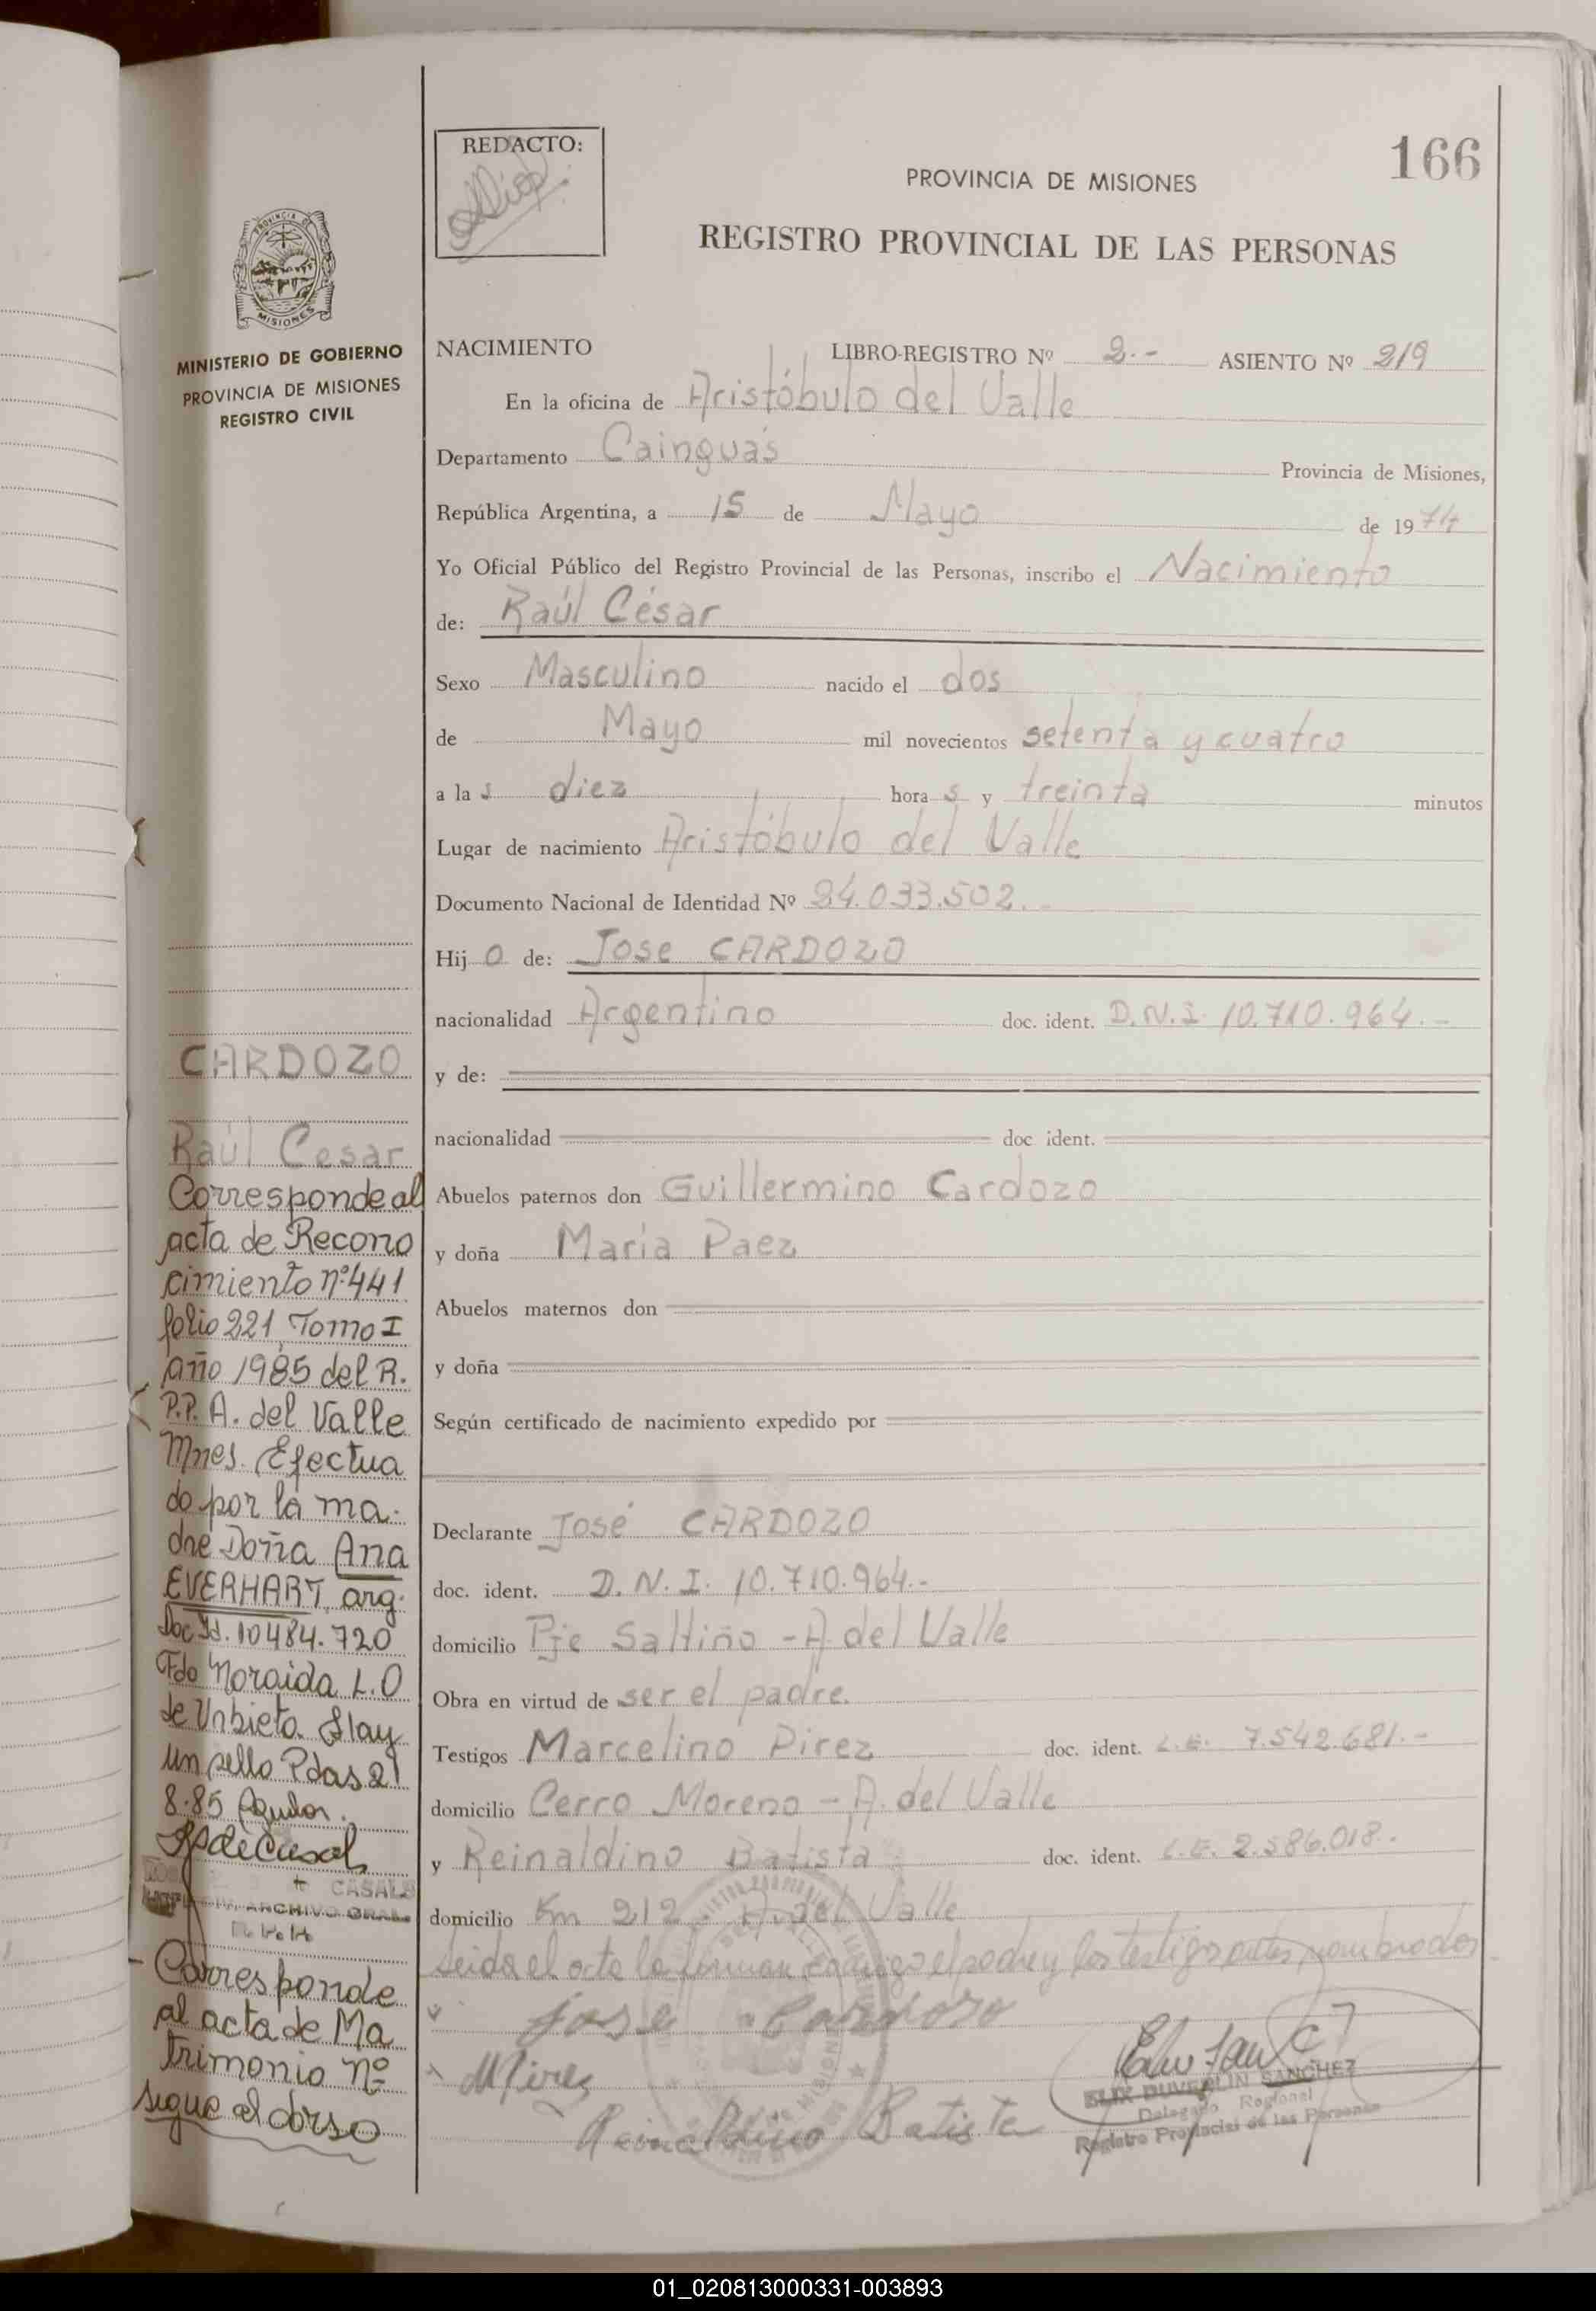 166
REDACTO:
PROVINCIA DE MISIONES
REGISTRO PROVINCIAL DE LAS PERSONAS
PROVINCIA DE
MISIONES
MINISTERIO DE GOBIERNO
PROVINCIA DE MISIONES
REGISTRO CIVIL
NACIMIENTO LIBRO-REGISTRO Nº 2.- ASIENTO Nº 219
En la oficina de Aristóbulo del Valle
Departamento Cainguás Provincia de Misiones,
República Argentina, a 15 de Mayo de 1974
Yo Oficial Público del Registro Provincial de las Personas, inscribo el Nacimiento
de: Raúl César
Sexo Masculino nacido el dos
de Mayo mil novecientos setenta y cuatro
a la s diez hora s y treinta minutos
Lugar de nacimiento Aristóbulo del Valle
Documento Nacional de Identidad Nº 24.033.502.-
Hij o de: Jose CARDOZO
nacionalidad Argentino doc. ident. D.N.I. 10.710.964.-
y de:
nacionalidad doc ident.
Abuelos paternos don Guillermino Cardozo
y doña Maria Paez
Abuelos maternos don
y doña
Según certificado de nacimiento expedido por
Declarante José CARDOZO
doc. ident. D.N.I. 10.710.964.-
domicilio Pje Saltiño - A. del Valle
Obra en virtud de ser el padre.
Testigos Marcelino Pirez doc. ident. L.E. 7.542.681.-
domicilio Cerro Moreno - A. del Valle
y Reinaldino Batista doc. ident. L.E. 2.586.018.-
domicilio Km 212 A. del Valle
Leida el acta la firman conmigo el padre y los testigos antes nombrados
Jose Cardozo
M Pires
Reinaldino Batista
SANCHEZ
Delegado Regional
Registro Provincial de las Personas
CARDOZO
Raúl Cesar
Corresponde al
acta de Recono
cimiento nº 441
folio 221 Tomo I
año 1985 del R.
P.P. A. del Valle
Mnes. Efectua
do por la ma-
dre Doña Ana
EVERHART, arg.
Doc Id. 10484.720
Fdo Noraida L.O
de Urbieta. Hay
un sello Pdas 21
8.85
CASALS
ARCHIVO GRAL.
- Corresponde
al acta de Ma
trimonio nº
sigue al dorso
01_020813000331-003893